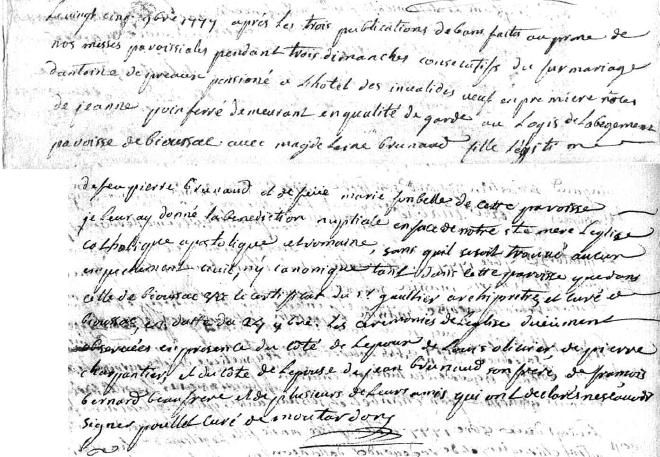 Le vingt cinq 9bre 1777 après les trois publications de bans faits au prone de
nos messes paroissiales pendant trois dimanches consecutifs du fur mariage
d'antoine depreaux pensioné a Lhotel des invalides veuf en premiere noces
de jeanne poinferré demeurant en qualité de garde au Logis de Labegement
paroisse de bioussac avec magdeleine brunaud fille legitime
de feu pierre brunaud et de feue marie de cette paroisse
je leur ay donné la benediction nuptiale en face de notre ste mere Leglise
catholique apostolique et romaine, sans quil se soit trouvé aucun
empechement civil, ny canonique tant dans cette paroisse que dans
celle de bioussac le certificat du sr gaultier archipretre et curé de
bioussac, en datte du 24 9bre. Les ceremonies de Leglise duëment
observées en presence du côté de Lepoux de Louis olivier de pierre
charpantier, et du côté de Lepouse de jean brunaud son frere, de francois
bernard beaufrere et de plusieurs de leurs amis qui ont declaré ne scavoir
signer poullet curé de moutardon